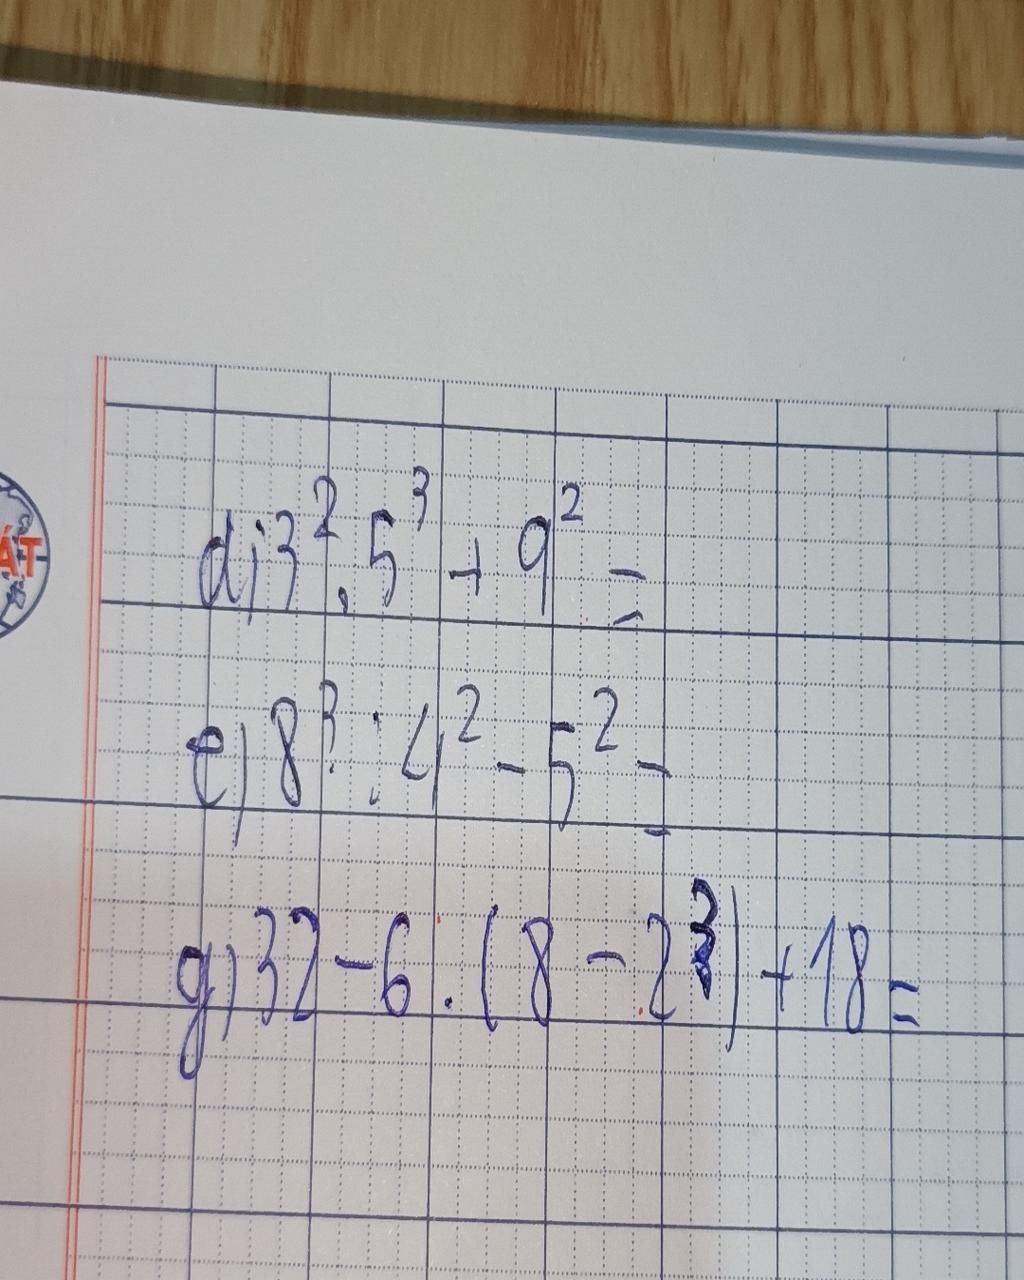 ÁT
d) 3² . 5³ + 9² =
e) 8³ : 4² - 5² =
g) 32 - 6 . (8 - 2³) + 18 =